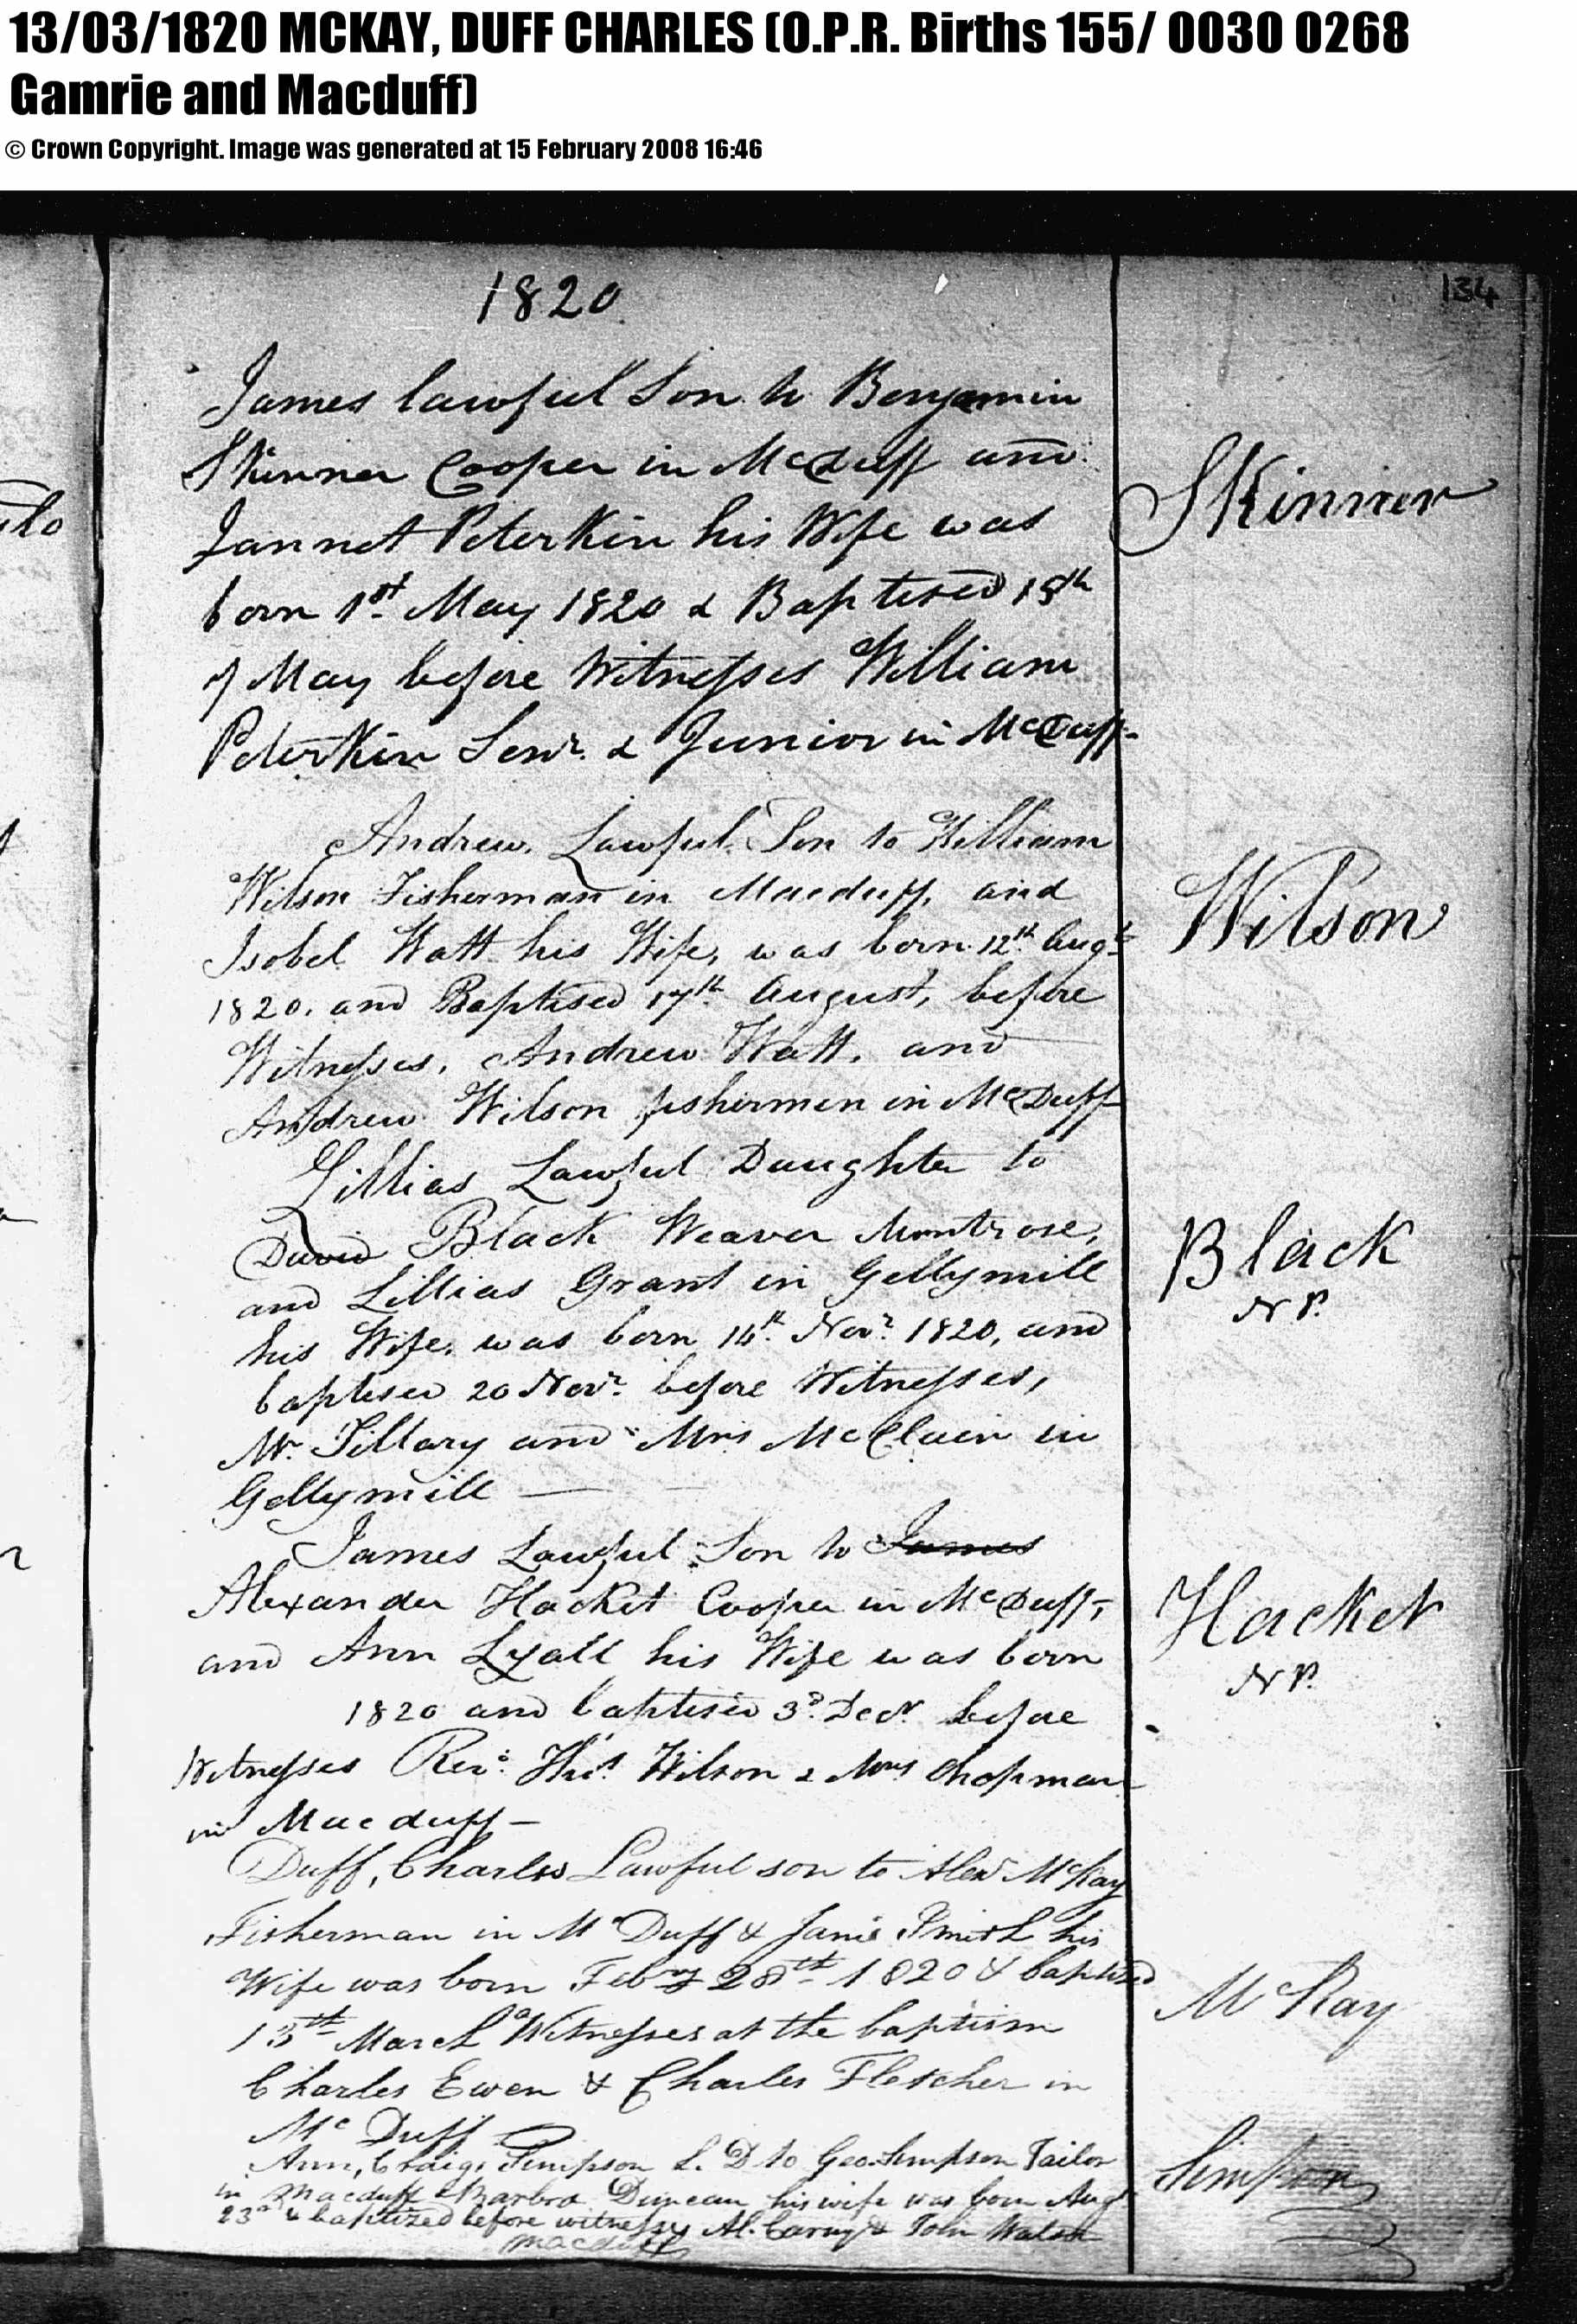 13/03/1820 MCKAY, DUFF CHARLES (O.P.R. Births 155/ 0030 0268
Gamrie and Macduff)
© Crown Copyright. Image was generated at 15 February 2008 16:46
1820
134
James lawful Son to Benjamin
Skinner Cooper in McDuff and
Jannet Peterkin his Wife was
Skinner
born 1st May 1820 & Baptised 15th
of May before Witnesses William
Peterkin Senr. & Junior in McDuff
Andrew, Lawful Son to William
Wilson Fisherman in Macduff, and
Isobel Watt his Wife, was born 12th Augt
Wilson
1820. and Baptised 17th August, before
Witnesses, Andrew Watt, and
Andrew Wilson fishermen in McDuff
Lillias Lawful Daughter to
David Black Weaver Montrose,
Black
and Lillias Grant in Gellymill
N P.
his Wife, was born 14th Novr. 1820, and
baptised 20 Novr. before Witnesses,
Mr. Tillary and Mrs McClain in
Gellymill
James Lawful Son to James
Alexander Hacket Cooper in McDuff,
Hacket
and Ann Lyall his Wife was born
N P.
1820 and baptised 3d. Decr. before
Witnesses Revd. Thos. Wilson & Mrs Chapman
in Macduff
Duff, Charles Lawful son to Alexr McKay
Fisherman in McDuff & Janie Smith his
Wife was born Febry 28th 1820 & baptized
McKay
13th March Witnesses at the baptism
Charles Ewen & Charles Fletcher in
McDuff
Ann, Craig, Simpson L. D to Geo. Simpson Tailor
Simpson
in Macduff & Barbra Duncan his wife was born Aug
23rd & baptized before witnesses Al. & John
Macduff